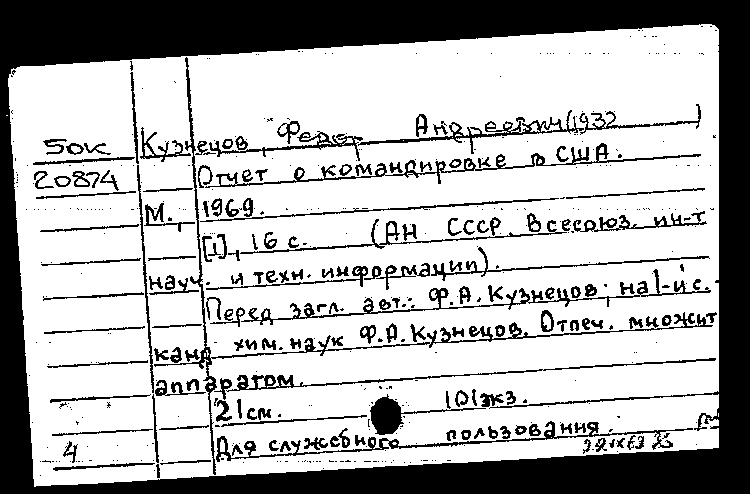 50к Кузнецов, Федор Андреевич (1932 )
20874 Отчет о командировке в США.
М., 1969.
[1], 16 с. (АН СССР. Всесоюз. ин-т
науч. и техн. информации).
Перед загл. авт.: Ф.А. Кузнецов; на 1-й с.-
канд. хим. наук Ф.А. Кузнецов. Отпеч. множит
аппаратом.
21 см. 101 экз.
4 Для служебного пользования.